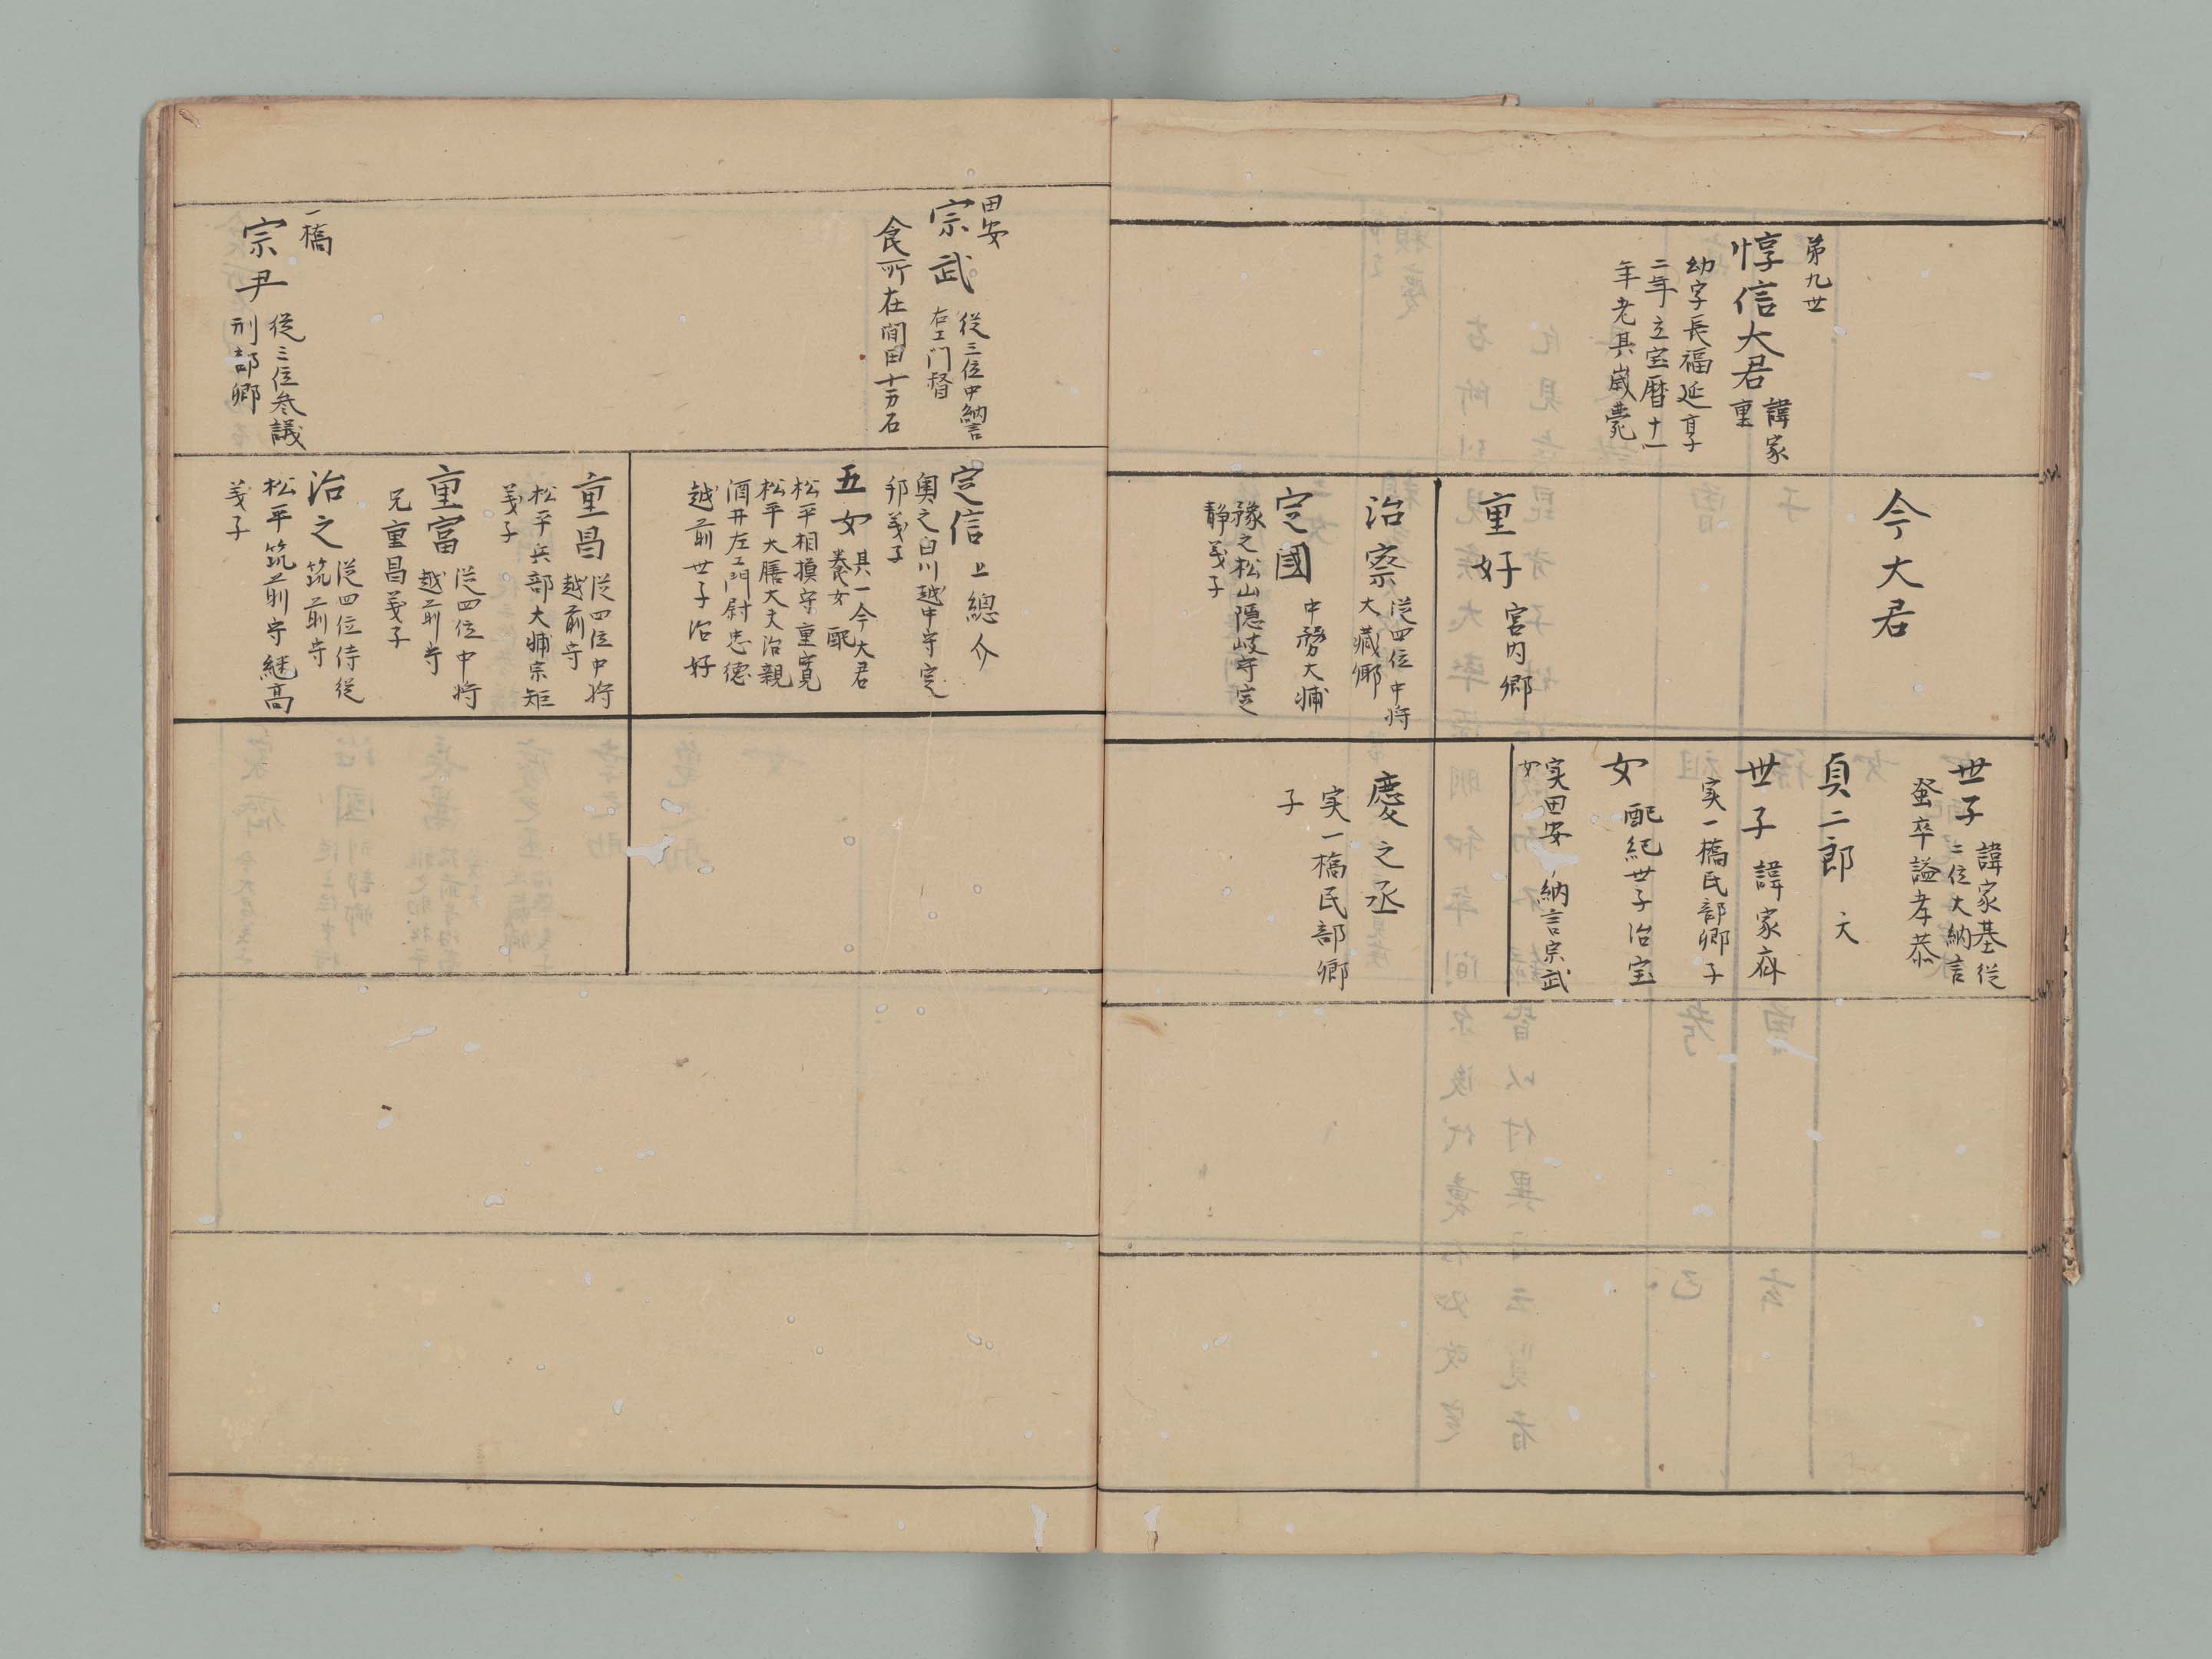 第九世
惇信大君 諱家
重
幼字長福延享
二年立宝暦十一
年老其歳薨
今大君
重好 宮内卿
治察 従四位中将
大蔵卿
定國 中務大輔
豫之松山隠岐守定
静義子
世子 諱家基従
二位大納言
蚤卒謚孝恭
貞二郎 夭
世子 諱家斉
実一橋民部卿子
女 配紀世子治宝
実田安納言宗武
女
慶之丞
実一橋民部卿
子
田安
宗武 従三位中納言
右エ門督
食所在間田十万石
定信 上總介
奥之白川越中守定
邦義子
五女 其一今大君
養女 配
松平相摸守重寛
松平大膳大夫治親
酒井左エ門尉忠徳
越前世子治好
一橋
宗尹 従三位参議
刑部卿
重昌 従四位中将
越前守
松平兵部大輔宗矩
義子
重富 従四位中将
越前守
兄重昌義子
治之 従四位侍従
筑前守
松平筑前守継高
義子